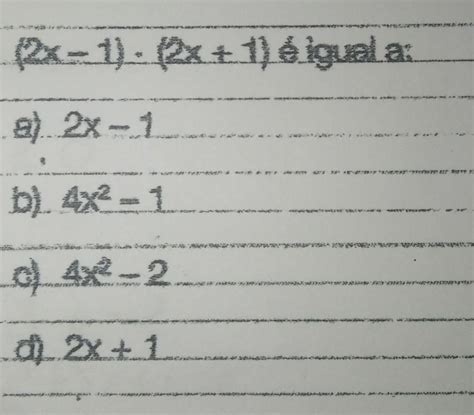 (2x – 1) · (2x + 1) é igual a:
a) 2x – 1
b) 4x² – 1
c) 4x² – 2
d) 2x + 1